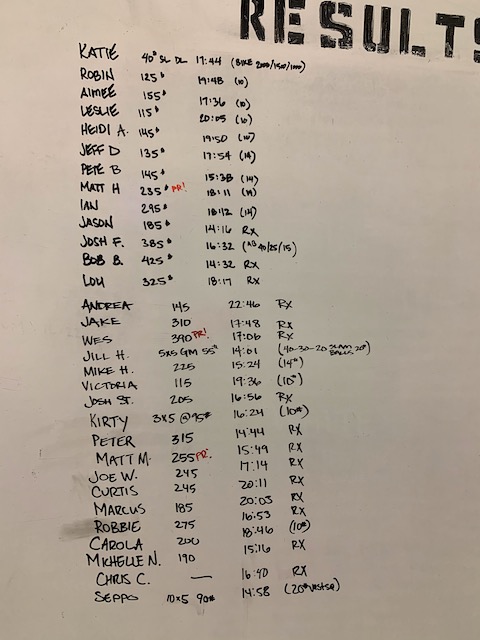 RESULTS
KATIE 40# SL DL 17:44 (BIKE 2000/1500/1000)
ROBIN 125# 19:48 (10)
AIMEE 155# 17:36 (10)
LESLIE 115# 20:05 (10)
HEIDI A. 145# 19:50 (10)
JEFF D 135# 17:54 (14)
PETE B 145# 15:38 (14)
MATT H 235# PR! 18:11 (14)
IAN 295# 18:12 (14)
JASON 185# 14:16 RX
JOSH F. 385# 16:32 (AB 40/25/15)
BOB B. 425# 14:32 RX
LOU 325# 18:17 RX
ANDREA 145 22:46 RX
JAKE 310 17:48 RX
WES 390 PR! 17:06 RX
JILL H. 5x5 GM 55# 14:01 (40-30-20 SLAM BALLS 20#)
MIKE H. 225 15:24 (14#)
VICTORIA 115 19:36 (10#)
JOSH ST. 205 16:56 RX
KIRTY 3x5 @95# 16:24 (10#)
PETER 315 14:44 RX
MATT M. 255 PR! 15:49 RX
JOE W. 245 17:14 RX
CURTIS 245 20:11 RX
MARCUS 185 20:03 RX
ROBBIE 275 16:53 RX
CAROLA 200 18:46 (10#)
MICHELLE N. 190 15:16 RX
CHRIS C. — 16:40 RX
SEPPO 10x5 90# 14:58 (20#